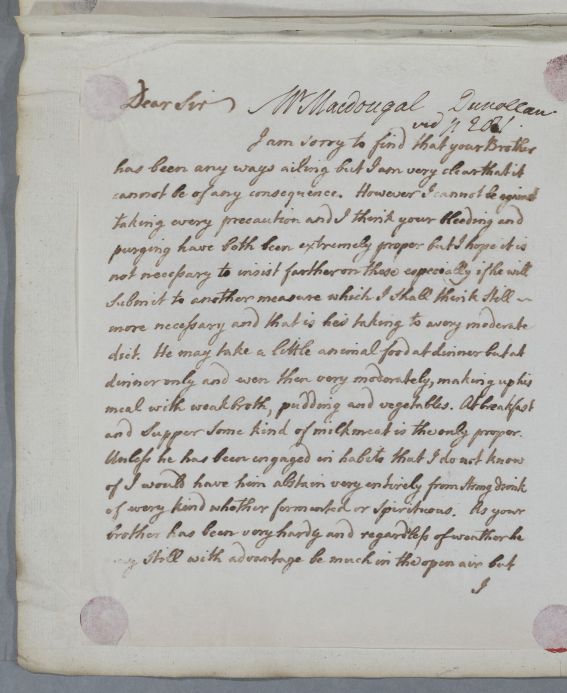 Dear Sir Mr Macdougal Dunollan
vid p 208
I am sorry to find that your Brother
has been any ways ailing but I am very clear that it
cannot be of any consequence. However I cannot be against
taking every precaution and I think your bleeding and
purging have both been extremely proper but I hope it is
not necessary to insist farther on these especially if he will
submit to another measure which I shall think still
more necessary and that is his taking to a very moderate
diet. He may take a little animal food at dinner but at
dinner only and even then very moderately, making up his
meal with weak broth, pudding and vegetables. At breakfast
and Supper some kind of milkmeat is the only proper.
Unless he has been engaged in habits that I do not know
of I would have him abstain very entirely from strong drink
of every kind whether fermented or spirituous. As your
brother has been very hardy and regardless of weather he
may still with advantage be much in the open air but
I